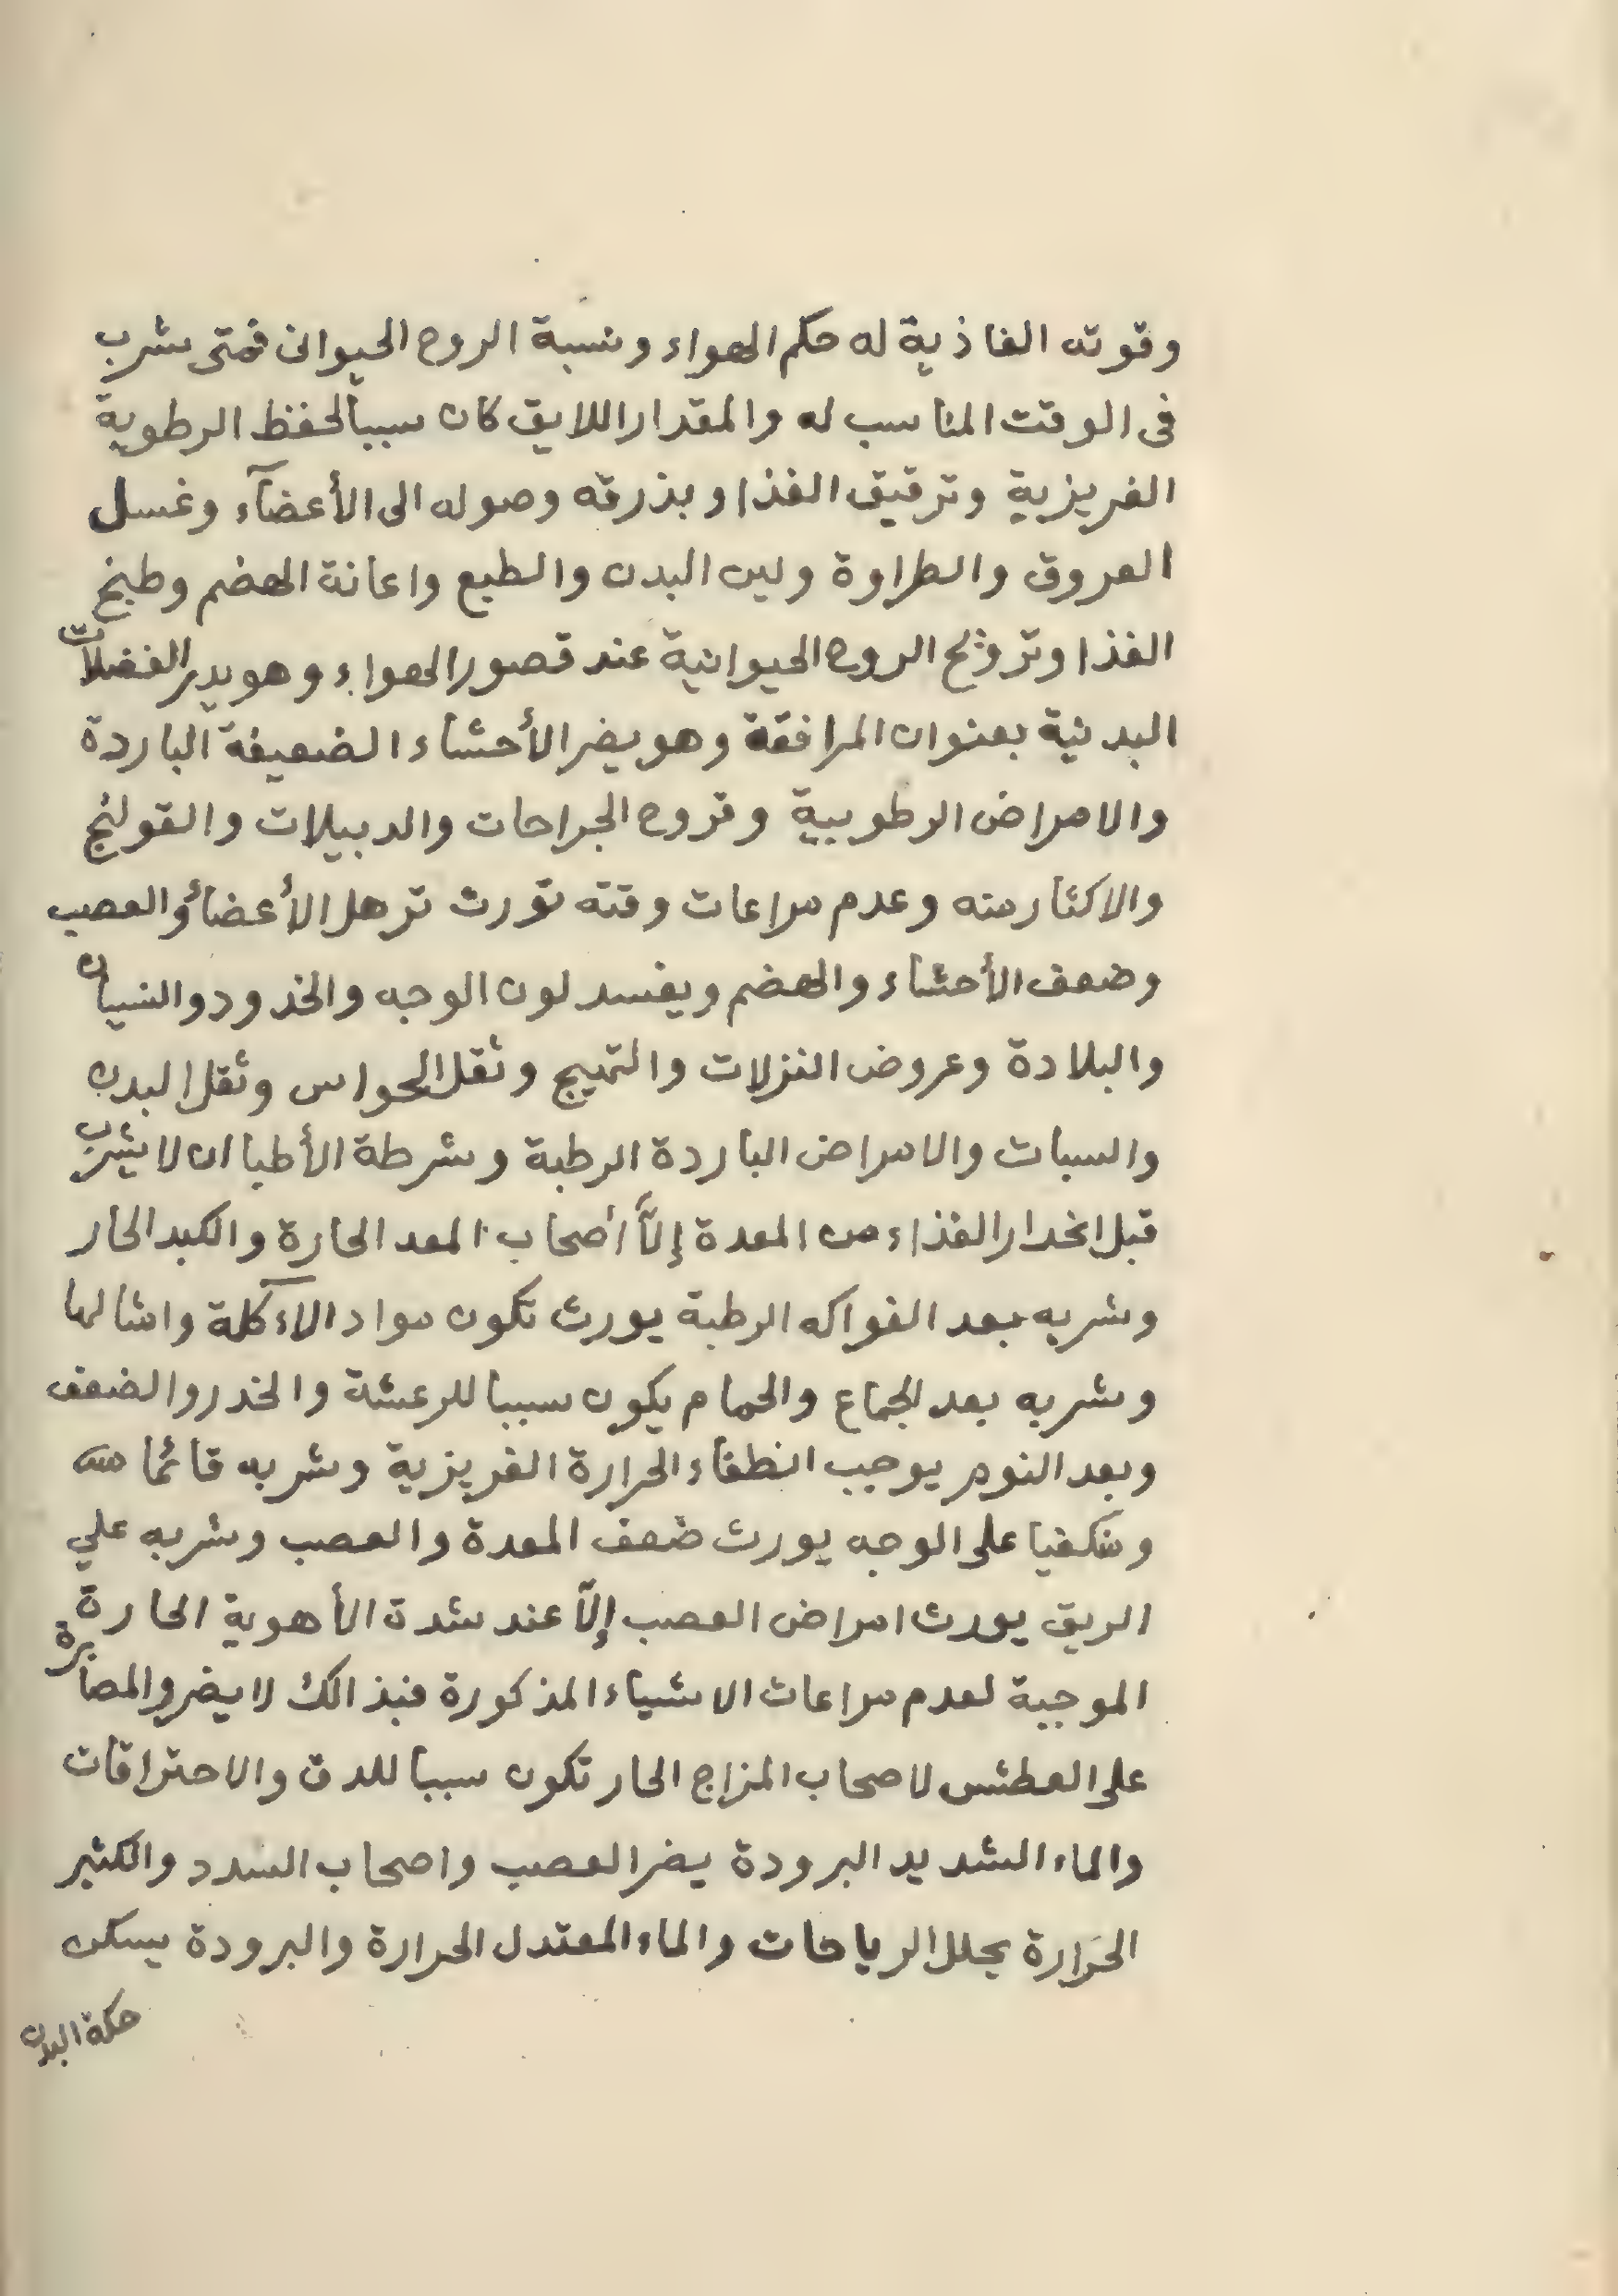 وقوته الغاذية له حكم الهواء ونسبة الروح الحيوانى فمتى شرب
فى الوقت المناسب له والمقدار اللايق كان سببا لحفظ الرطوبة
الغريزية وترقيق الغذا وبذرقه وصوله الى الأعضآء وغسل
العروق والطراوة ولين البدن والطبع واعانة الهضم وطبخ
الغذا وترويح الروح الحيوانية عند قصور الهواء وهو يدر الفضلات
البدنية بعنوان المرافقة وهو يضر الأحشاء الضعيفة الباردة
والامراض الرطوبية وقروح الجراحات والدبيلات والقولنج
والاكثار منه وعدم مراعات وقته تورث ترهل الأعضاء والعصب
وضعف الأحشاء والهضم ويفسد لون الوجه والخدود والنسيان
والبلادة وعروض النزلات والتهيج وثقل الحواس وثقل البدن
والسبات والامراض الباردة الرطبة وشرطة الأطبا ان لا يشرب
قبل انحدار الغذاء من المعدة إلاّ أصحاب المعد الحارة والكبد الحار
وشربه بعد الفواكه الرطبة يورث تكون مواد الآكلة وامثالها
وشربه بعد الجماع والحمام يكون سببا للرعشة والخدر والضعف
وبعد النوم يوجب انطفاء الحرارة الغريزية وشربه قائما منه
ومنكفيا على الوجه يورث ضعف المعدة والعصب وشربه علي
الريق يورث امراض العصب إلاّ عند شدة الأهوية الحارة
الموجبة لعدم مراعات الاشياء المذكورة فبذالك لا يضر والمصابرة
على العطش لاصحاب المزاج الحار تكون سببا للدق والاحتراقات
والماء الشديد البرودة يضر العصب واصحاب السدد والكثير
الحَرارة يحلل الرياحات والماء المعتدل الحرارة والبرودة يسكن
حكة البدن